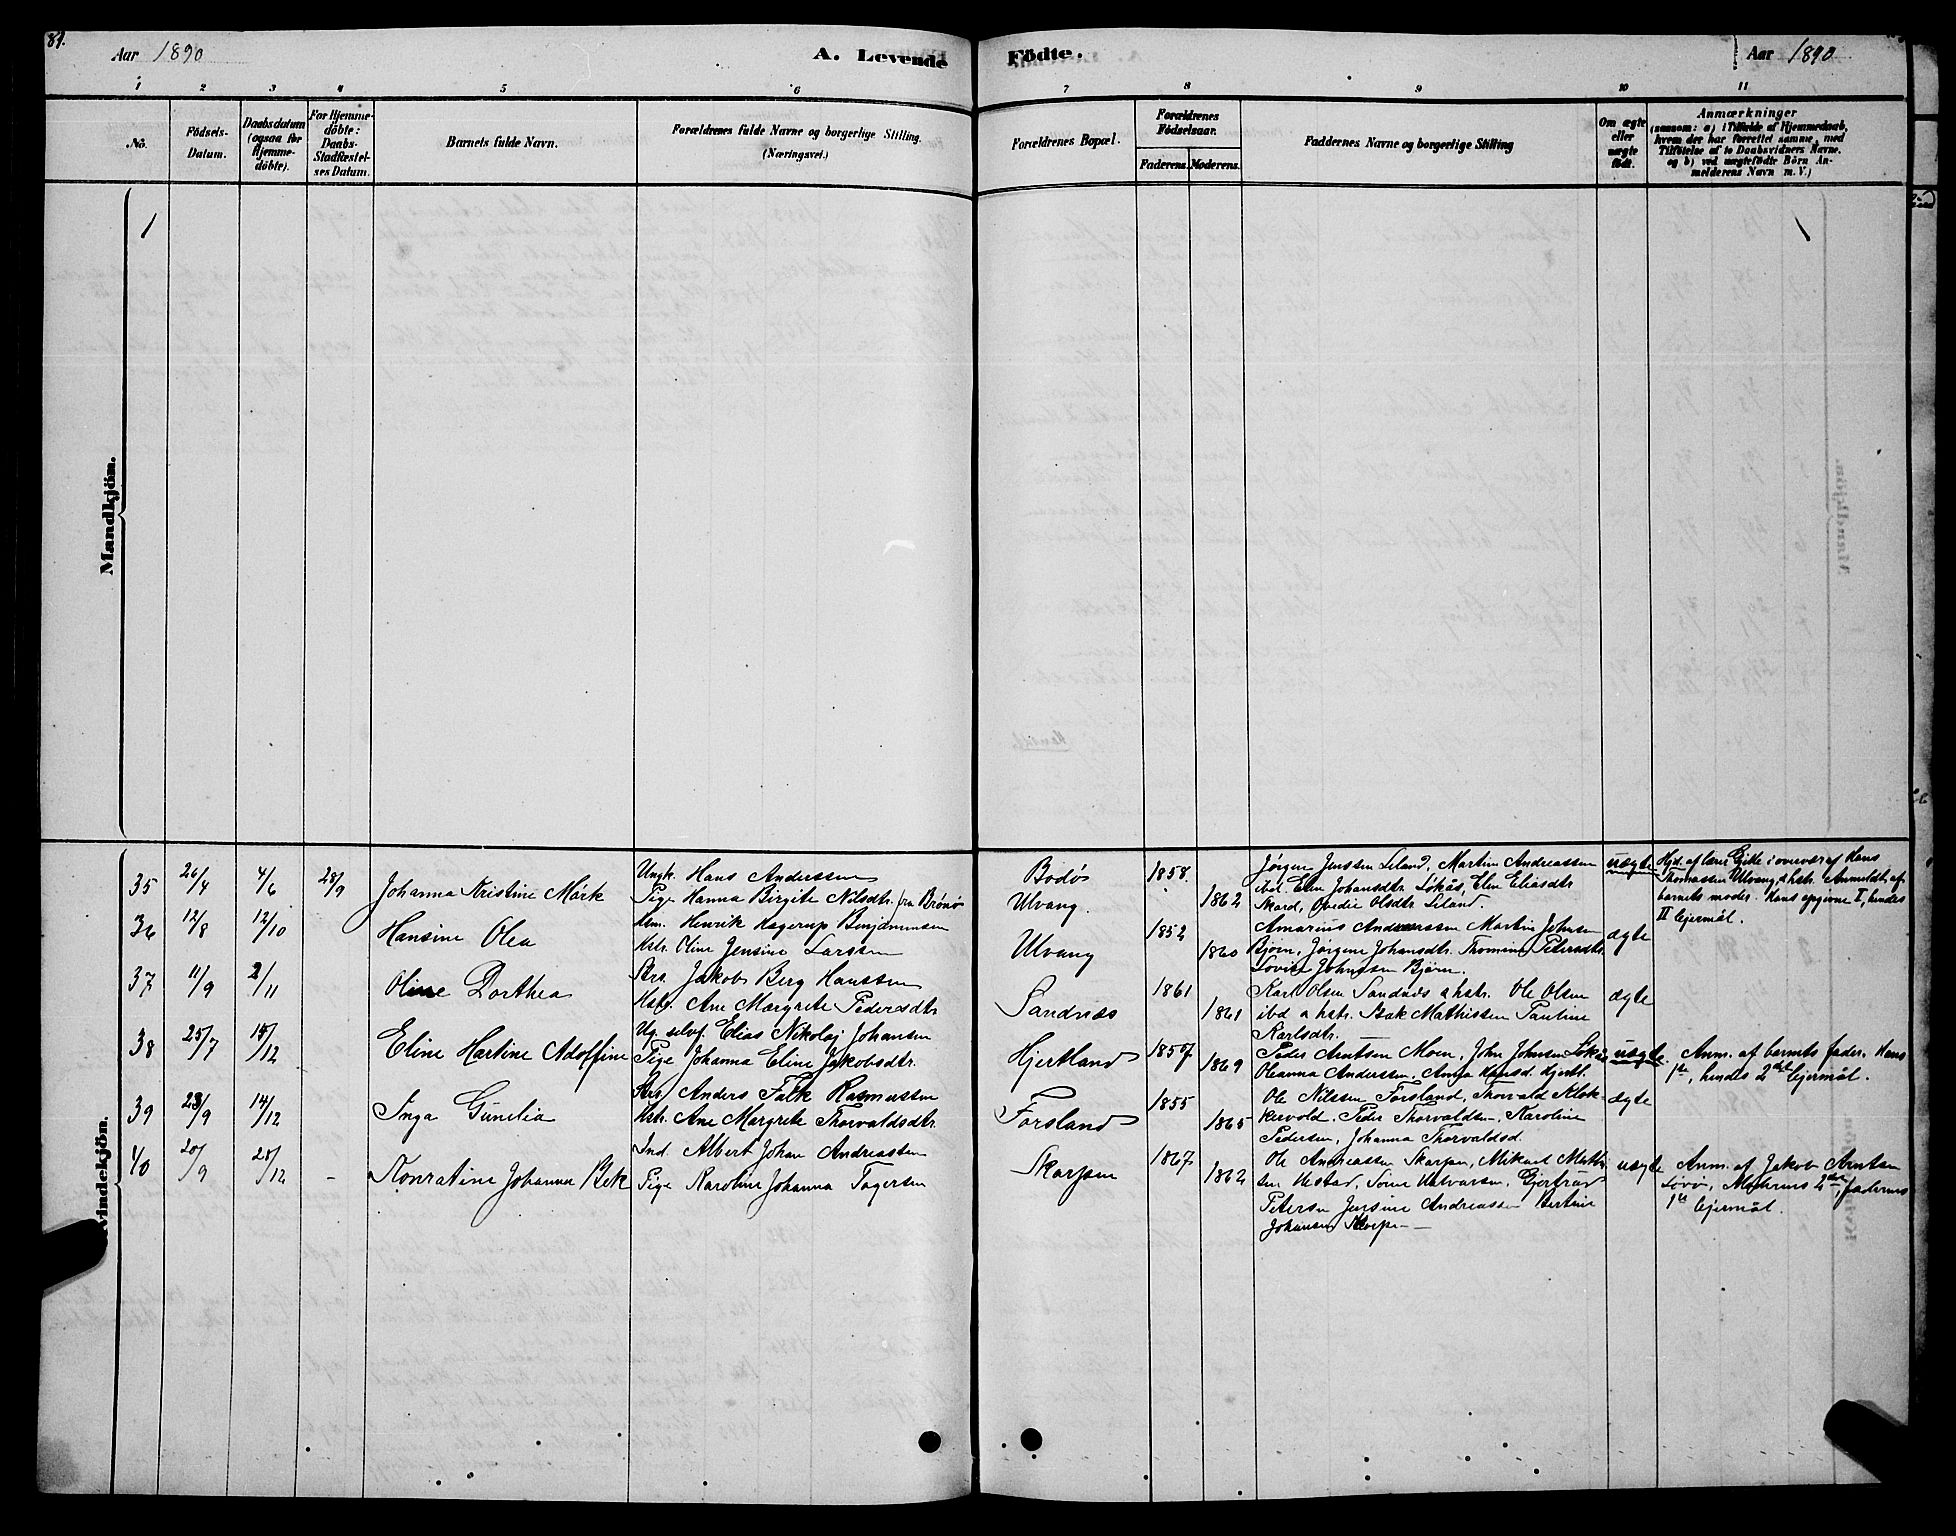 89.
Aar 1890
A. Levende
Födte.
Aar 1890.
1 2 3 4 5 6 7 8 9 10 11
No.
Födsels-
Datum.
Daabsdatum
(ogsaa for
Hjemme-
döbte).
For Hjemme-
döbte:
Daabs-
Stadfæstel-
ses Datum.
Barnets fulde Navn.
Forældrenes fulde Navne og borgerlige Stilling.
(Næringsvei.)
Forældrenes Bopæl.
Forældrenes
Födselsaar.
Faderens. Moderens.
Faddernes Navne og borgerlige Stilling
Om ægte
eller
uægte
födt.
Anmærkninger
(saasom: a) i Tilfælde af Hjemmedaab,
hvem der har forrettet samme, med
Tilföielse af to Daabsvidners Navne.
og b) ved uægtefödte Börn An-
melderens Navn m. V.)
Mandkjön.
Kvindekjön.
35 26/4 4/6 28/9 Johanna Kristine Mörk
Ungk. Hans Anderssen
Pige Hanna Birgite Nilsdtr. fra Brönö
Bodö
Ulvang.
1858.
1862
Jørgen Jenssen Leland, Martin Andreassen
ibd. Elen Johansdtr. Løkås, Elen Eliasdtr.
Skard, Ovedie Olsdtr. Leland.
uægte
Hjd. af lærer Gjette i overvær af Hans
Thomassen Ulvang & hstr. Anmeldt af
barnets moder. Hans opgivne I, hendes
II lejermål.
36 12/8 12/10 Hansine Olea
Hm. Henrik Hagerup Benjaminsen
Hstr. Oline Jensine Larssen
Ulvang
1852
1860
Amarius Andreassen Martin Johnsen
Bjørn, Jørgine Johansdtr. Thomine Petersdtr.
Lovise Johnsen Bjørn.
ægte
37 11/9 2/11 Oline Dorthea
Str. Jakob Berg Hanssen
Hstr. Ane Margrete Pedersdtr
Sandnæs
1861
1861
Karl Olsen Sandnæs & hstr. Ole Olsen
ibd & hstr. Bak Mathissen Pauline
Karlsdtr.
ægte
38 25/7 15/12 Eline Hartine Adolfine
Ug. selvf. Elias Nikolaj Johansen
Pige Johanna Eline Jakobsdtr.
Hjertland
1857
1869
Peder Arntsen Moen, John Johnsen Løkås
Oleanna Anderssen, Anna Hansd. Hjertl.
uægte
Anm. af barnets fader. Hans
1ste, hendes 2det lejermål.
39 23/9 14/12 Inga Gunelia
Str. Anders Falk Rasmussen
Hstr. Ane Margrete Thorvaldsdtr.
Forsland
1855
1865
Ole Nilssen Forsland, Thorvald Klok-
kervold. Peder Thorvaldsen. Karoline
Pedersen, Johanna Thorvaldsd.
ægte
40 20/9 28/12 - Konratine Johanna Bek
Ind. Albert Johan Andreassen
Pige Karoline Johanna Tagersen
Skarpen
1867
1862
Ole Andreassen Skarpen, Mikael Math-
sen Ulstad, Sone Halvarsen. Gjertrud
Petersen Jensine Andreassen Bertine
Johansen Skarpen
uægte
Anm. af Jakob Arntsen
Lovö, Moderens 2det faderens
1ste lejermål.